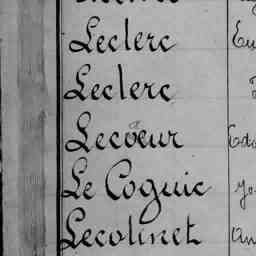 Leclerc Eu
Leclerc
Lecoeur Edo
Le Coguic Jo
Lecolinet An